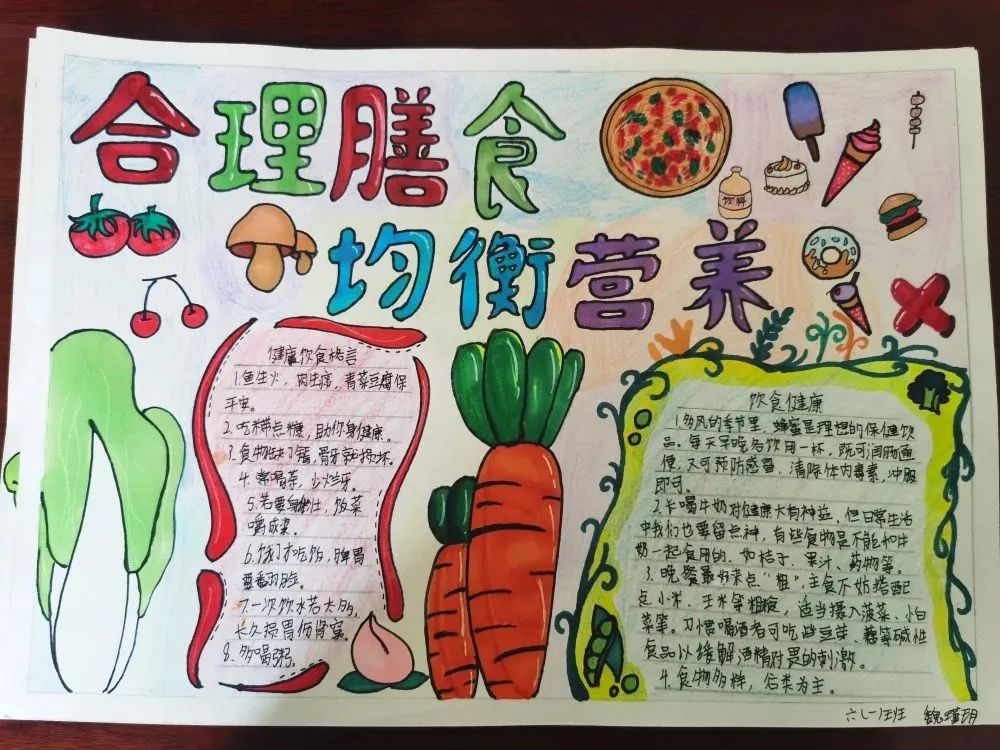 合理膳食
饮料
均衡营养
健康饮食格言
1.鱼生火，肉生痰，青菜豆腐保
平安。
2.吃带点糖，助你身健康。
3.食物缺了钙，骨牙就损坏。
4.常喝茶，少烂牙。
5.若要身体壮，饭菜
嚼成浆。
6.饭们才吃饱，脾胃
要番羽脸。
7.一次饮水若太多，
长久损胃伤肾窝。
8.多喝粥。
饮食健康
1.多风的季节里，蜂蜜是理想的保健饮
品。每天早晚各饮用一杯，既可润肠通
便，又可预防感冒，清除体内毒素，冲服
即可。
2.长喝牛奶对健康大有神益，但日常生活
中我们也要留点神，有些食物是不能和牛
奶一起食用的，如桔子、果汁、药物等。
3.晚餐最好来点“粗”，主食不妨搭配
点小米、玉米等粗粮，适当摄入菠菜、小白
菜等。习惯喝酒者可吃些豆芽、等碱性
食品以缓解酒精对胃的刺激。
4.食物多样，谷类为主。
六(一)班 魏瑾玥